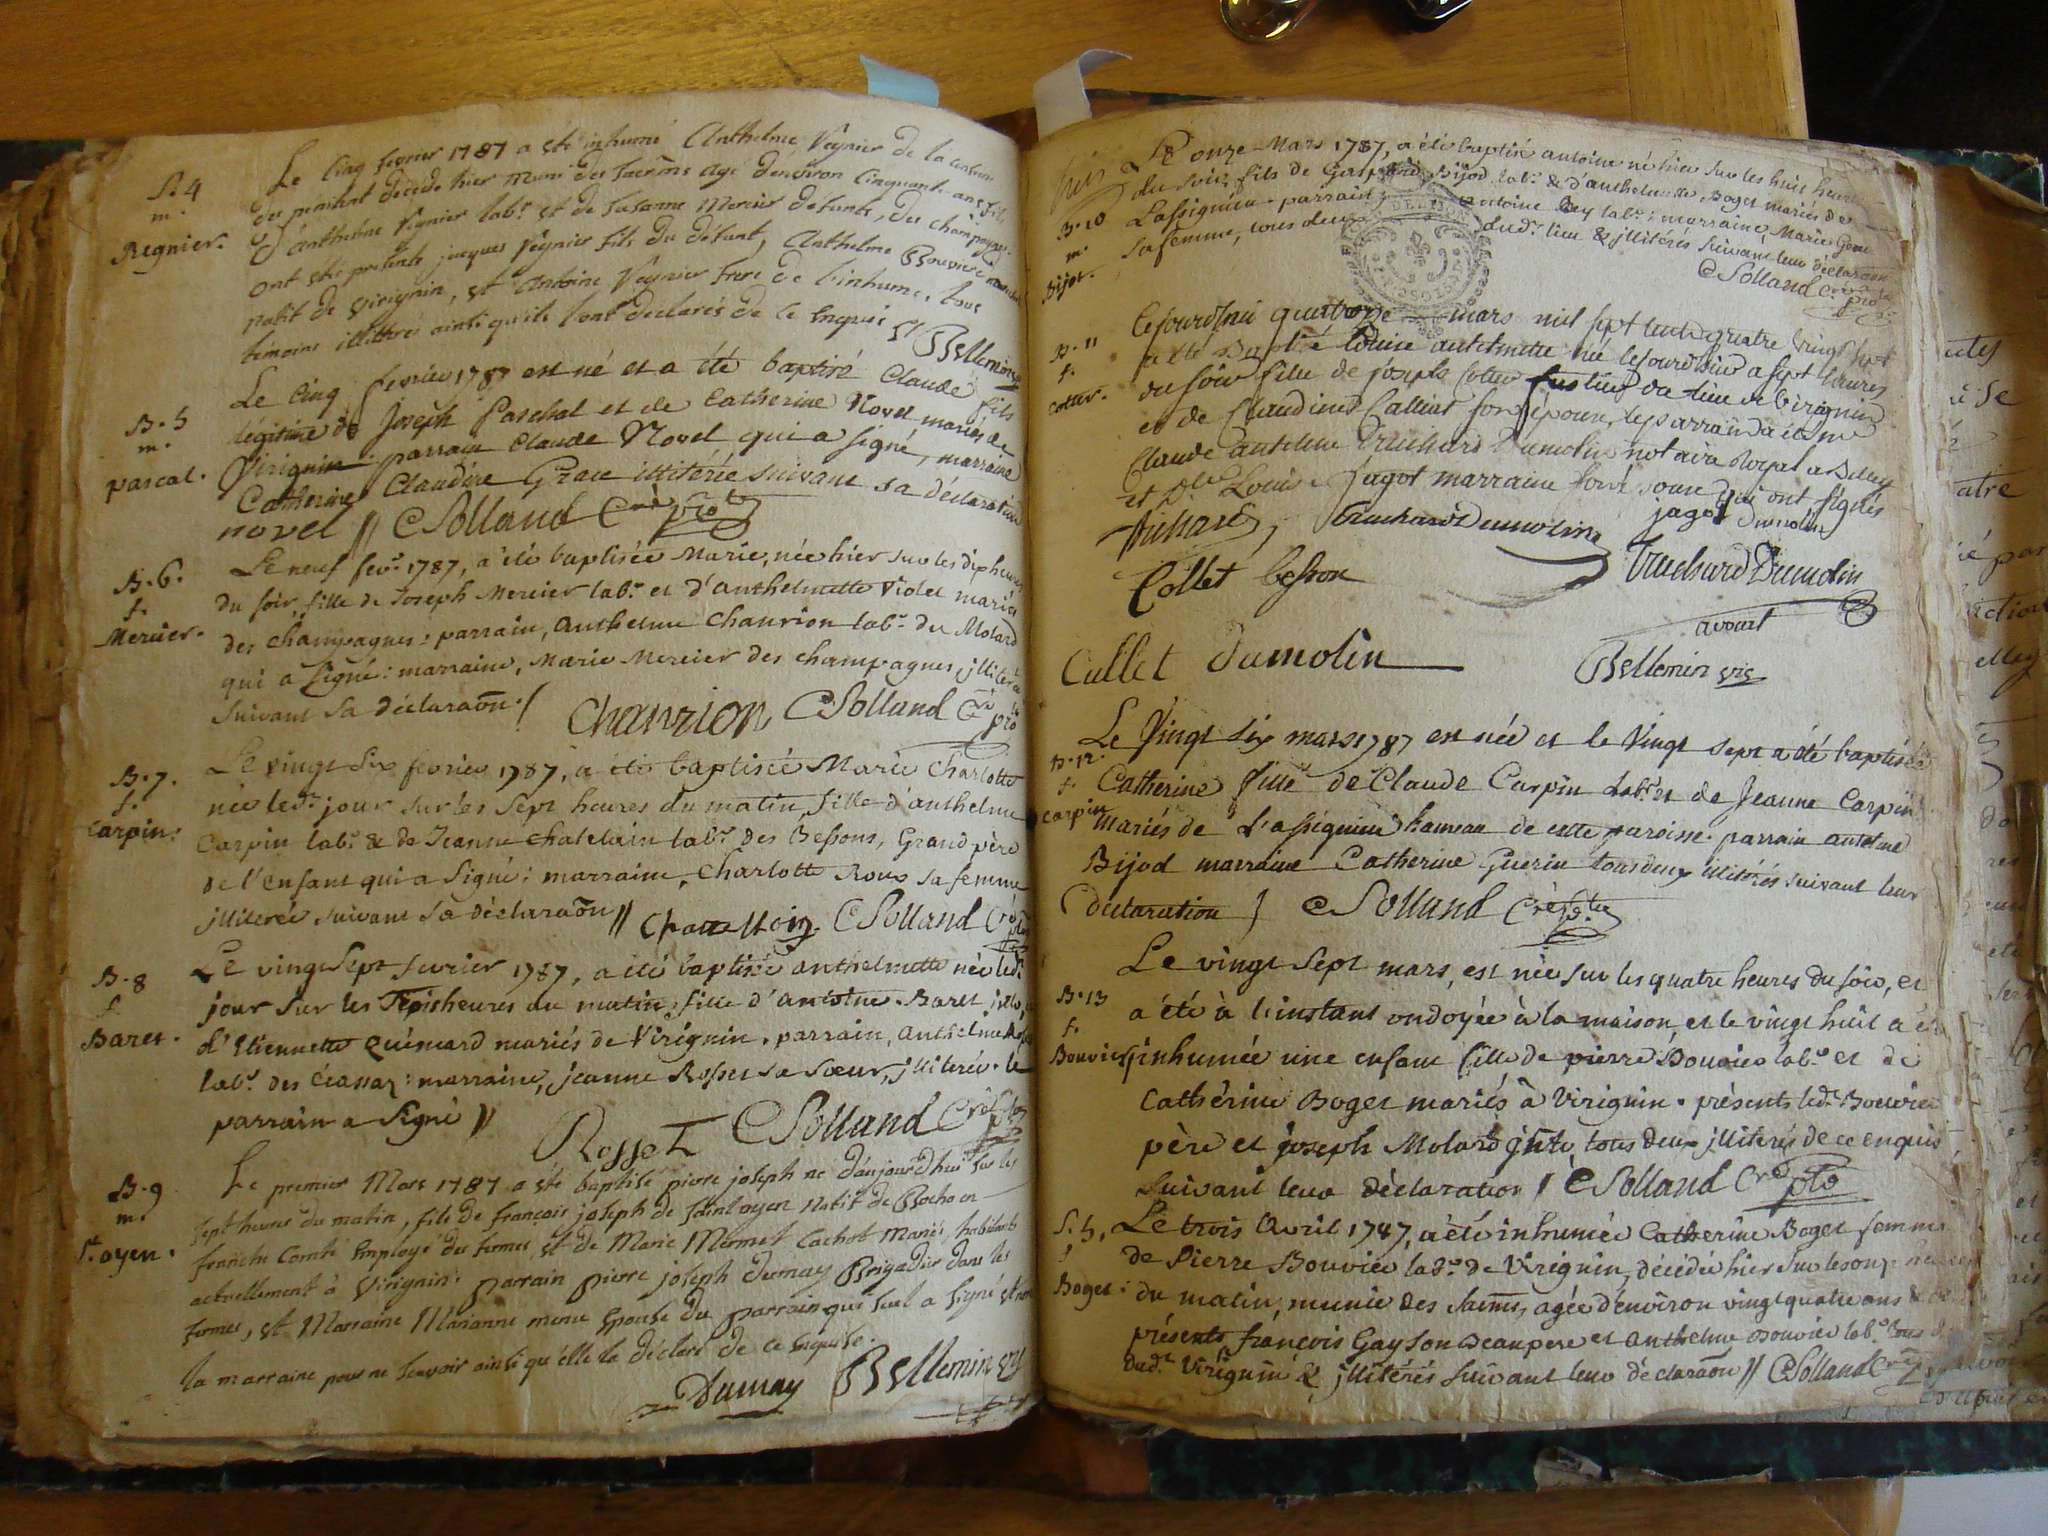 S. 4
m.
Regnier.
Le Cinq fevrier 1787 a été inhumé Anthelme Veynier de la
decédé hier muni des Sacrems agé denviron Cinquante ans fils
d'anthelme Veynier labr. et de Susanne Mercier défunts, des champagnes
ont été présents jacques Veynier fils du défunt, Anthelme Bouvier
natif de Virignin, et Antoine Veynier frere de l'inhumé, tous
témoins illittérés ainsi qu'ils l'ont déclarés de ce Enquis
Bellemin
B. 5
m.
pascal.
Le Cinq fevrier 1787 est né et a été baptisé Claude fils
légitime de Joseph Paschal et de Catherine Novel mariés de
Virignin parrain Claude Novel qui a signé, marraine
Catherine Claudine Grace illitérée suivant sa déclaration
novel // C Solland Cré. pto
B. 6.
f.
Mercier.
Le neuf fevr. 1787, a été baptisée Marie, née hier sur les dix heures
du soir, fille de Joseph Mercier labr. et d'anthelmette Violet mariés
des champagnes : parrain, anthelme Chanrion labr. du Molard
qui a Signé : marraine, Marie Mercier des champagnes, illiterée
suivant sa déclaraõn. /
Chanrion C Solland Cré pto
B. 7.
f.
Carpin.
Le vingt Six fevrier 1787, a été baptisée Marie Charlotte
née ledt. jour sur les Sept heures du matin, fille d'anthelme
Carpin labr. & de Jeanne Chatelain labr. des Bessons, Grand père
de l'enfant qui a Signé ; marraine, Charlotte Roux sa femme
illiterée suivant sa déclaraõn //
C Solland Cré
B. 8
f
Baret.
Le vingt Sept fevrier 1787, a été baptisée anthelmette née ledt.
jour sur les Trois heures du matin, fille d'antoine Baret
d'Etiennette quinard mariés de Virignin. parrain, anthelme Rosset
labr. des écassaz : marraine, jeanne Rosset sa sœur, illiterée. le
parrain a Signé //
Rosset C Solland Cré pto
B. 9
m.
St. oyen.
Le premier Mars 1787 a été baptisé pierre joseph né d'aujourd'huy sur les
sept heures du matin, fils de françois joseph de Saint oyen natif de
franche Comté Employé des fermes, et de Marie Mermet Cachot Mariés, habitants
actuellement à Virignin. parrain pierre joseph dumay Brigadier dans les
fermes, et Marraine Marianne epouse du parrain qui seul a signé et non
la marraine pour ne scavoir ainsi qu'elle la déclaré de ce enquise.
Dumay Bellemin vic
B. 10
m.
Bijot.
Le onze Mars 1787, a été baptisé antoine né hier sur les huit heures
du soir, fils de Gaspard Bijod labr. & d'anthelmette Boget mariés de
Lassignieu. parrain, antoine Bey labr. ; marraine, Marie
sa femme, tous deux dudt. lieu & illitérés suivant leur déclaraõn
C Solland Cré pto
B. 11
f.
Cottet.
Cejourdhui quatorze mars mil sept cent quatre vingt sept
a été baptisé Louise antelmette né cejourdhui a sept heures
du soir fille de joseph du lieu de Virignin
et de Claudine Calliat son épouse, le parrain a été me
Claude antelme Truchard Dumolin notaire Royal a Belley
et dlle Louise Jagot marraine qui ont signés
Truchard Dumolin jagot dumolin
Collet besson Truchard Dumolin
avocat
Cullet dumolin Bellemin vic
B. 12.
f.
Carpin
Le Vingt six mars 1787 est née et le Vingt sept a été baptisée
Catherine fille de Claude Carpin Labr. et de Jeanne Carpin
mariés de Lassignieu hameau de cette paroisse. parrain antelme
Bijod marraine Catherine Guerin tous deux illitérés suivant leur
déclaration } C Solland Cré pto
B. 13
f.
Bouvier
Le vingt Sept mars, est née sur les quatre heures du soir, et
a été à l'instant ondoyée à la maison, et le vingt huit a été
inhumée une enfant fille de pierre Bouvier labr. et de
Cathérine Boget mariés à Virignin. présents ledt. Bouvier
père et joseph Molard, tous deux illiterés de ce enquis
suivant leur déclaration / C Solland Cré pto
S. 5,
f
Boget :
Le trois Avril 1787, a été inhumée Catherine Boget femme
de Pierre Bouvier labr. de Virignin, décédée hier sur les onze heures
du matin, munie des Sacms, agée d'environ vingt quatre ans
présents françois Gay son Beaupere et anthelme Bouvier labr. tous
dudt. Virignin & illitérés suivant leur déclaraõn // C Solland Cré